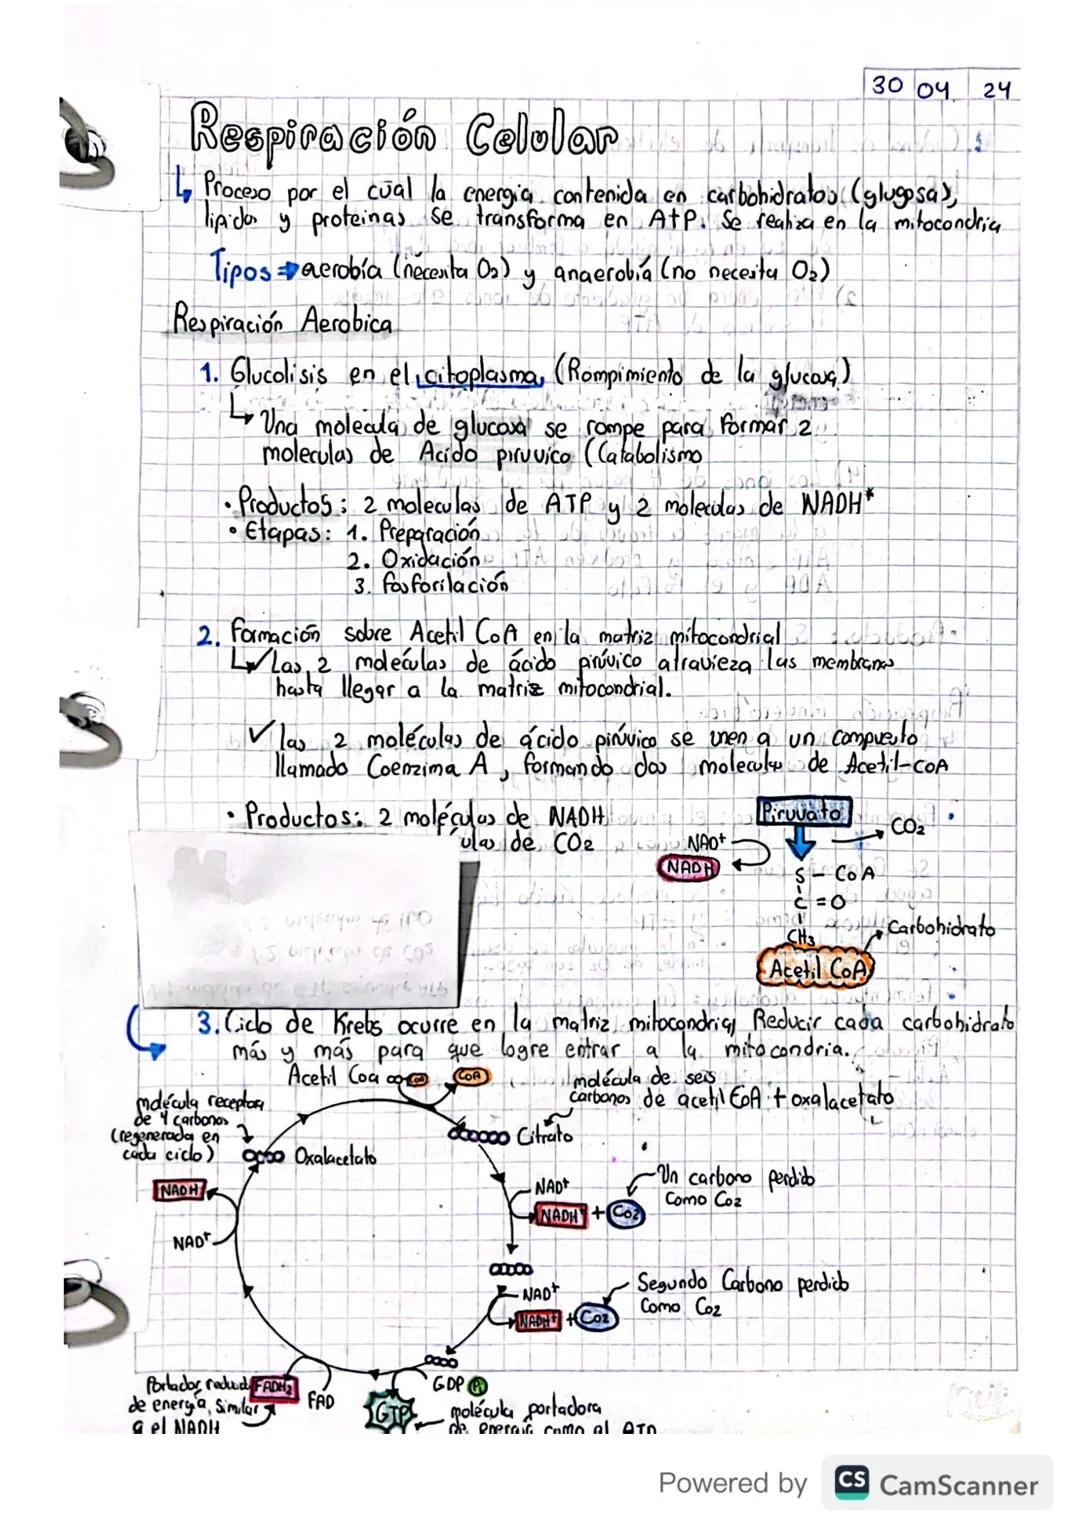 30 04 24
Respiración Celular
↳ Proceso por el cual la energia contenida en carbohidratos (glugosa),
lipidos y proteinas se transforma en AtP. Se realiza en la mitocondria
Tipos ⇒ aerobía (necesita O2) y anaerobiá (no necesita O2)
Respiración Aerobica
1. Glucolisis en el citoplasma, (Rompimiento de la glucosa)
↳ Una molecula de glucosa se rompe para formar 2
moleculas de Acido piruvico (Catabolismo
• Productos: 2 moleculas de ATP y 2 moleculas de NADH*
• Etapas: 1. Preparación
2. Oxidación
3. fosforilación
2. formación sobre Acetil CoA en la matriz mitocondrial
↳✓ Las 2 moléculas de ácido pirúvico atravieza las membranas
hasta llegar a la matriz mitocondrial.
✓ las 2 moléculas de ácido pirúvico se unen a un compuesto
llamado Coenzima A, formando dos moleculas de Acetil-coA
• Productos: 2 moléculas de NADH
ulas de CO2
Piruvato
CO2
NAD+
NADH
S - CoA
C = O
CH3
Carbohidrato
Acetil CoA
3. Ciclo de Krebs ocurre en la matriz mitocondrial Reducir cada carbohidrato
más y más para que logre entrar a la mitocondria.
Acetil Coa
CoA
CoA
molécula de seis
carbonos de acetil CoA + oxalacetato
molécula receptora
de 4 carbonos
(regenerada en
cada ciclo)
Oxalacetato
Citrato
NADH
NAD+
NAD+
NADH + Co2
Un carbono perdido
Como Co2
NAD+
NADH+ + Co2
Segundo Carbono perdido
Como Co2
GDP Pi
GTP
molécula portadora
de energia como al ATP
FAD
FADH2
Portador reducido
de energía, Similar
a el NADH
Powered by CS CamScanner